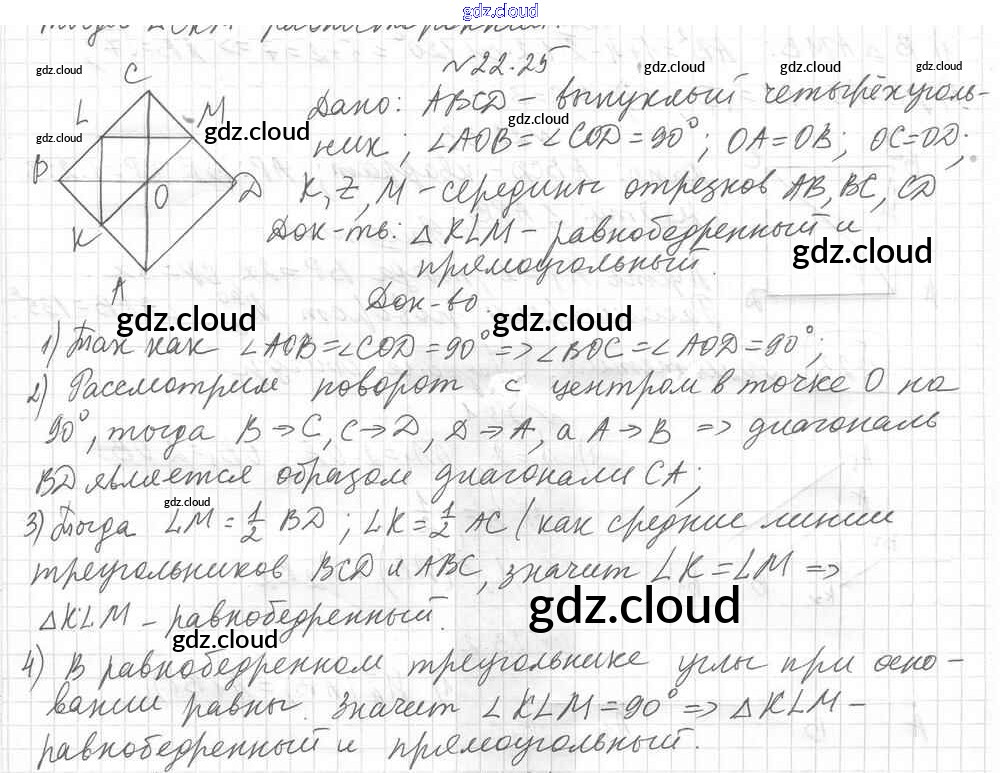 gdz.cloud
№22.25
gdz.cloud gdz.cloud gdz.cloud gdz.cloud
C
L M
gdz.cloud gdz.cloud gdz.cloud
B O D
K
A
Дано: ABCD – выпуклый четырёхуголь-
ник; ∠AOB = ∠COD = 90°; OA = OB; OC = OD;
K, L, M – середины отрезков AB, BC, CD
Док-ть: △ KLM – равнобедренный и
прямоугольный.
gdz.cloud
Док-во.
gdz.cloud gdz.cloud
1) Так как ∠AOB = ∠COD = 90° => ∠BOC = ∠AOD = 90°;
2) Рассмотрим поворот с центром в точке O на
90°, тогда B → C, C → D, D → A, а A → B => диагональ
BD является образом диагонали CA;
gdz.cloud
3) Тогда LM = 1/2 BD; LK = 1/2 AC (как средние линии
треугольников BCD и ABC, значит LK = LM =>
△KLM – равнобедренный.
gdz.cloud
gdz.cloud
4) В равнобедренном треугольнике углы при осно-
вании равны. Значит ∠KLM = 90° => △KLM –
равнобедренный и прямоугольный.